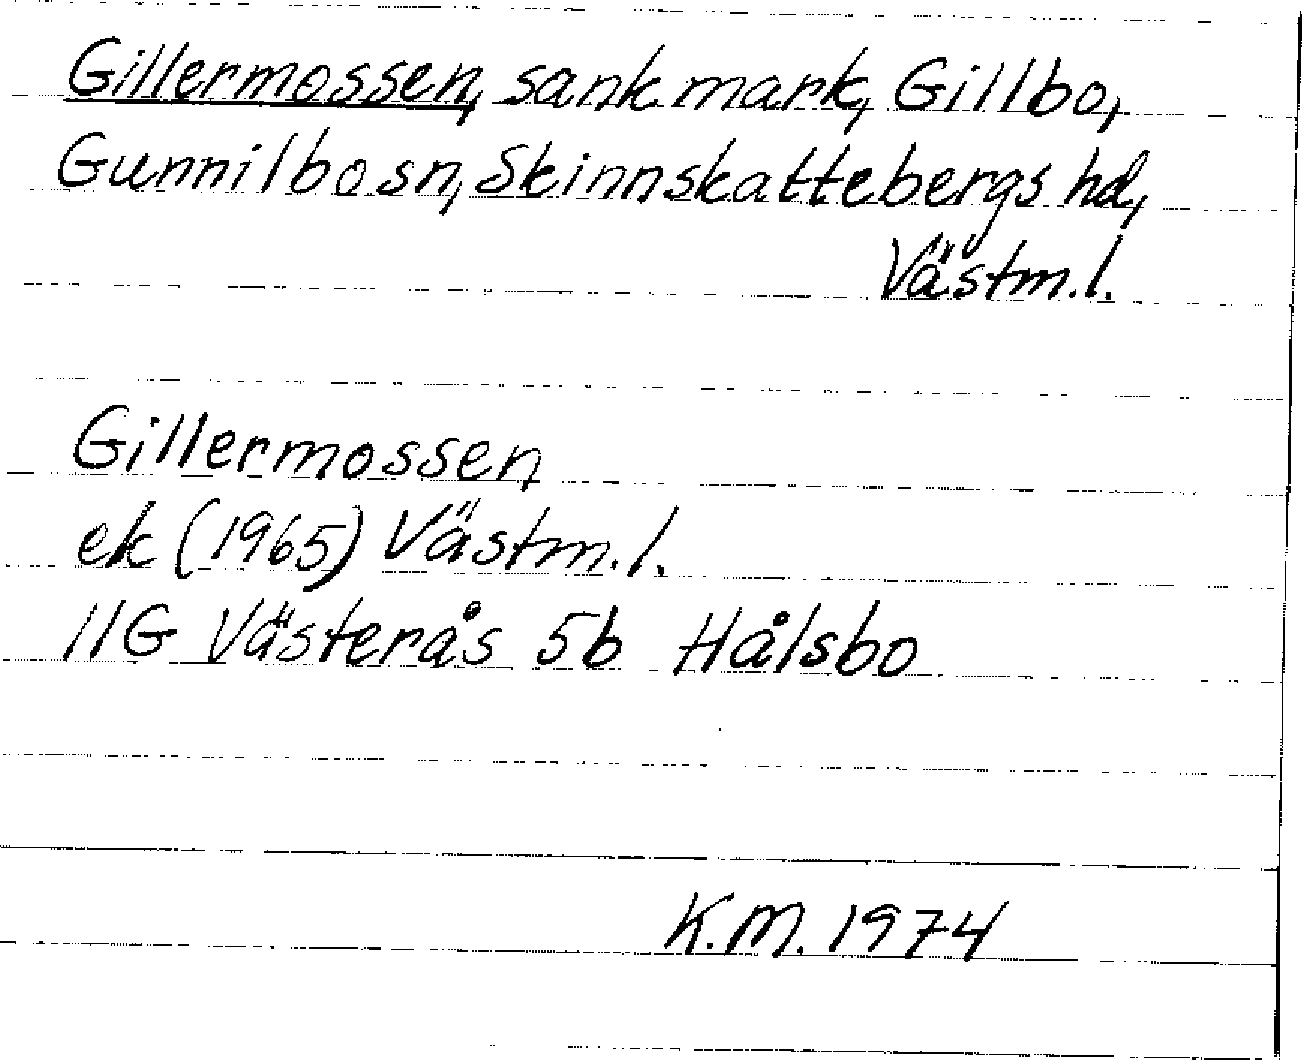 Gillermossen, sank mark, Gillbo,
Gunnilbo sn, Skinnskattebergs hd,
Västm.l.
Gillermossen
ek (1965) Västm.l.
11G Västerås 5b Hålsbo
K.M. 1974